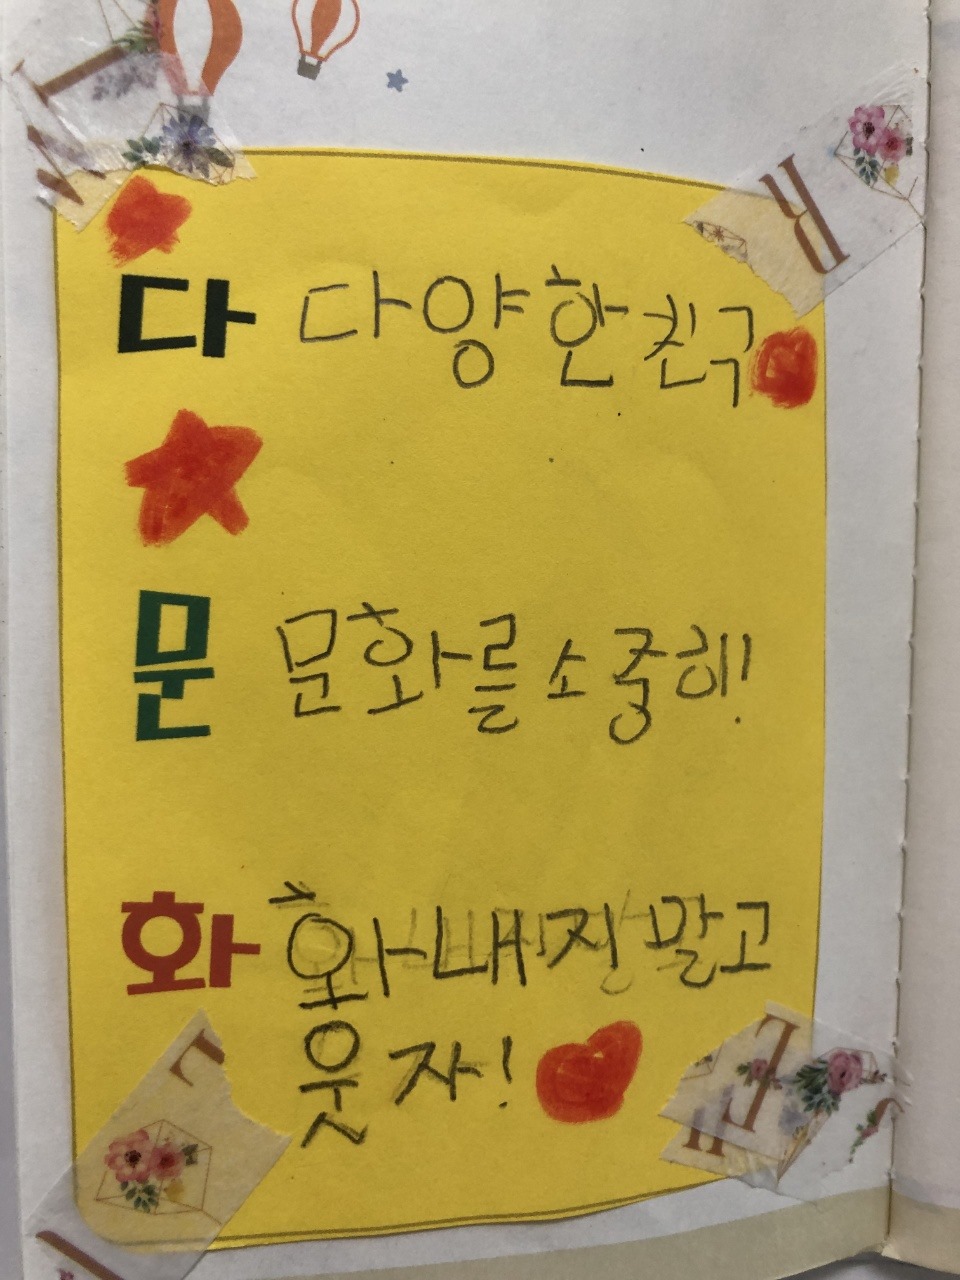 다 다양한 친구
문 문화를 소중히!
화 화내진 말고
웃자!